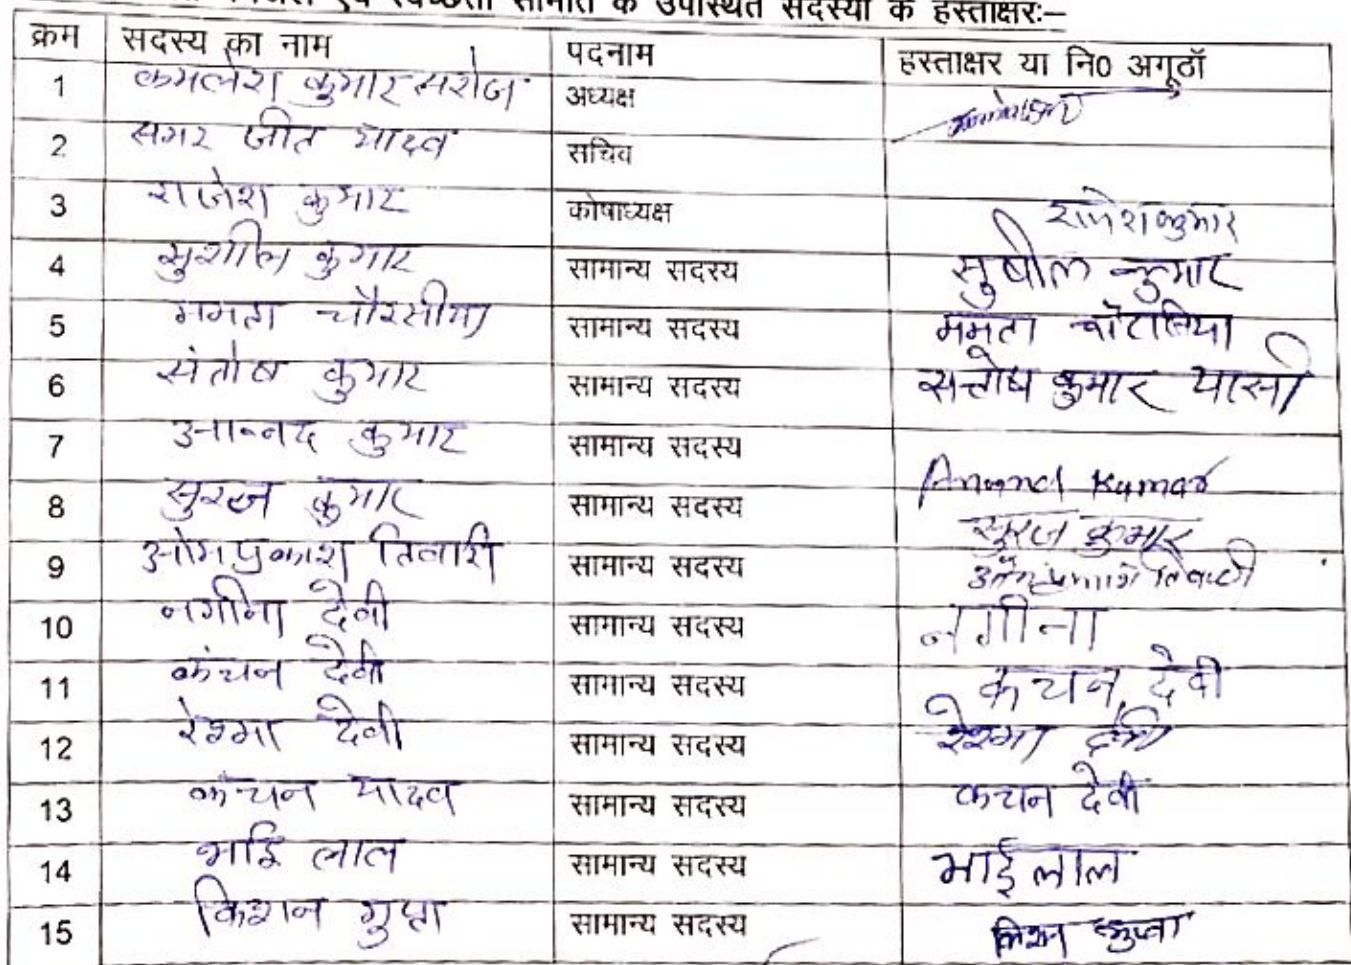 एवं स्वच्छता समिति के उपस्थित सदस्यों के हस्ताक्षरः–
क्रम सदस्य का नाम पदनाम हस्ताक्षर या नि0 अगूठॉ
1 कमलेश कुमार सरोज अध्यक्ष
2 समर जीत यादव सचिव
3 राजेश कुमार कोषाध्यक्ष राजेश कुमार
4 सुशील कुमार सामान्य सदस्य सुषील कुमार
5 ममता चौरसीया सामान्य सदस्य ममता
6 संतोष कुमार सामान्य सदस्य सन्तोष कुमार पासी
7 आनन्द कुमार सामान्य सदस्य Anand Kumar
8 सुरज कुमार सामान्य सदस्य सुरज कुमार
9 ओमप्रकाश तिवारी सामान्य सदस्य ओमप्रकाश तिवारी
10 नगीना देवी सामान्य सदस्य नगीना
11 कंचन देवी सामान्य सदस्य कचन देवी
12 रेश्मा देवी सामान्य सदस्य रेश्मा देवी
13 कंचन यादव सामान्य सदस्य कचन देवी
14 भाई लाल सामान्य सदस्य भाई लाल
15 किशन गुप्ता सामान्य सदस्य किशन गुप्ता